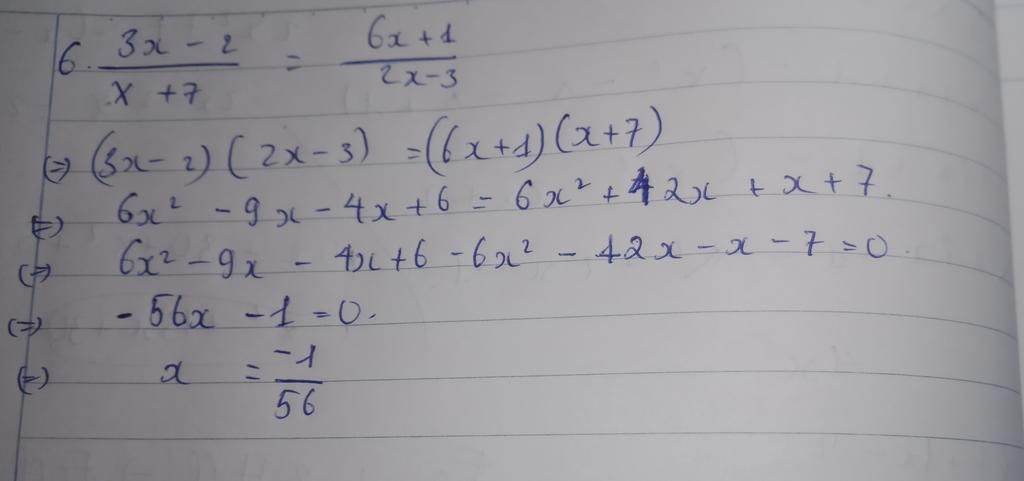 6. \frac{3x - 2}{x + 7} = \frac{6x + 1}{2x - 3}
(=) (3x - 2)(2x - 3) = (6x + 1)(x + 7)
(=) 6x² - 9x - 4x + 6 = 6x² + 42x + x + 7.
(=) 6x² - 9x - 4x + 6 - 6x² - 42x - x - 7 = 0.
(=) - 56x - 1 = 0.
(=) x = \frac{-1}{56}